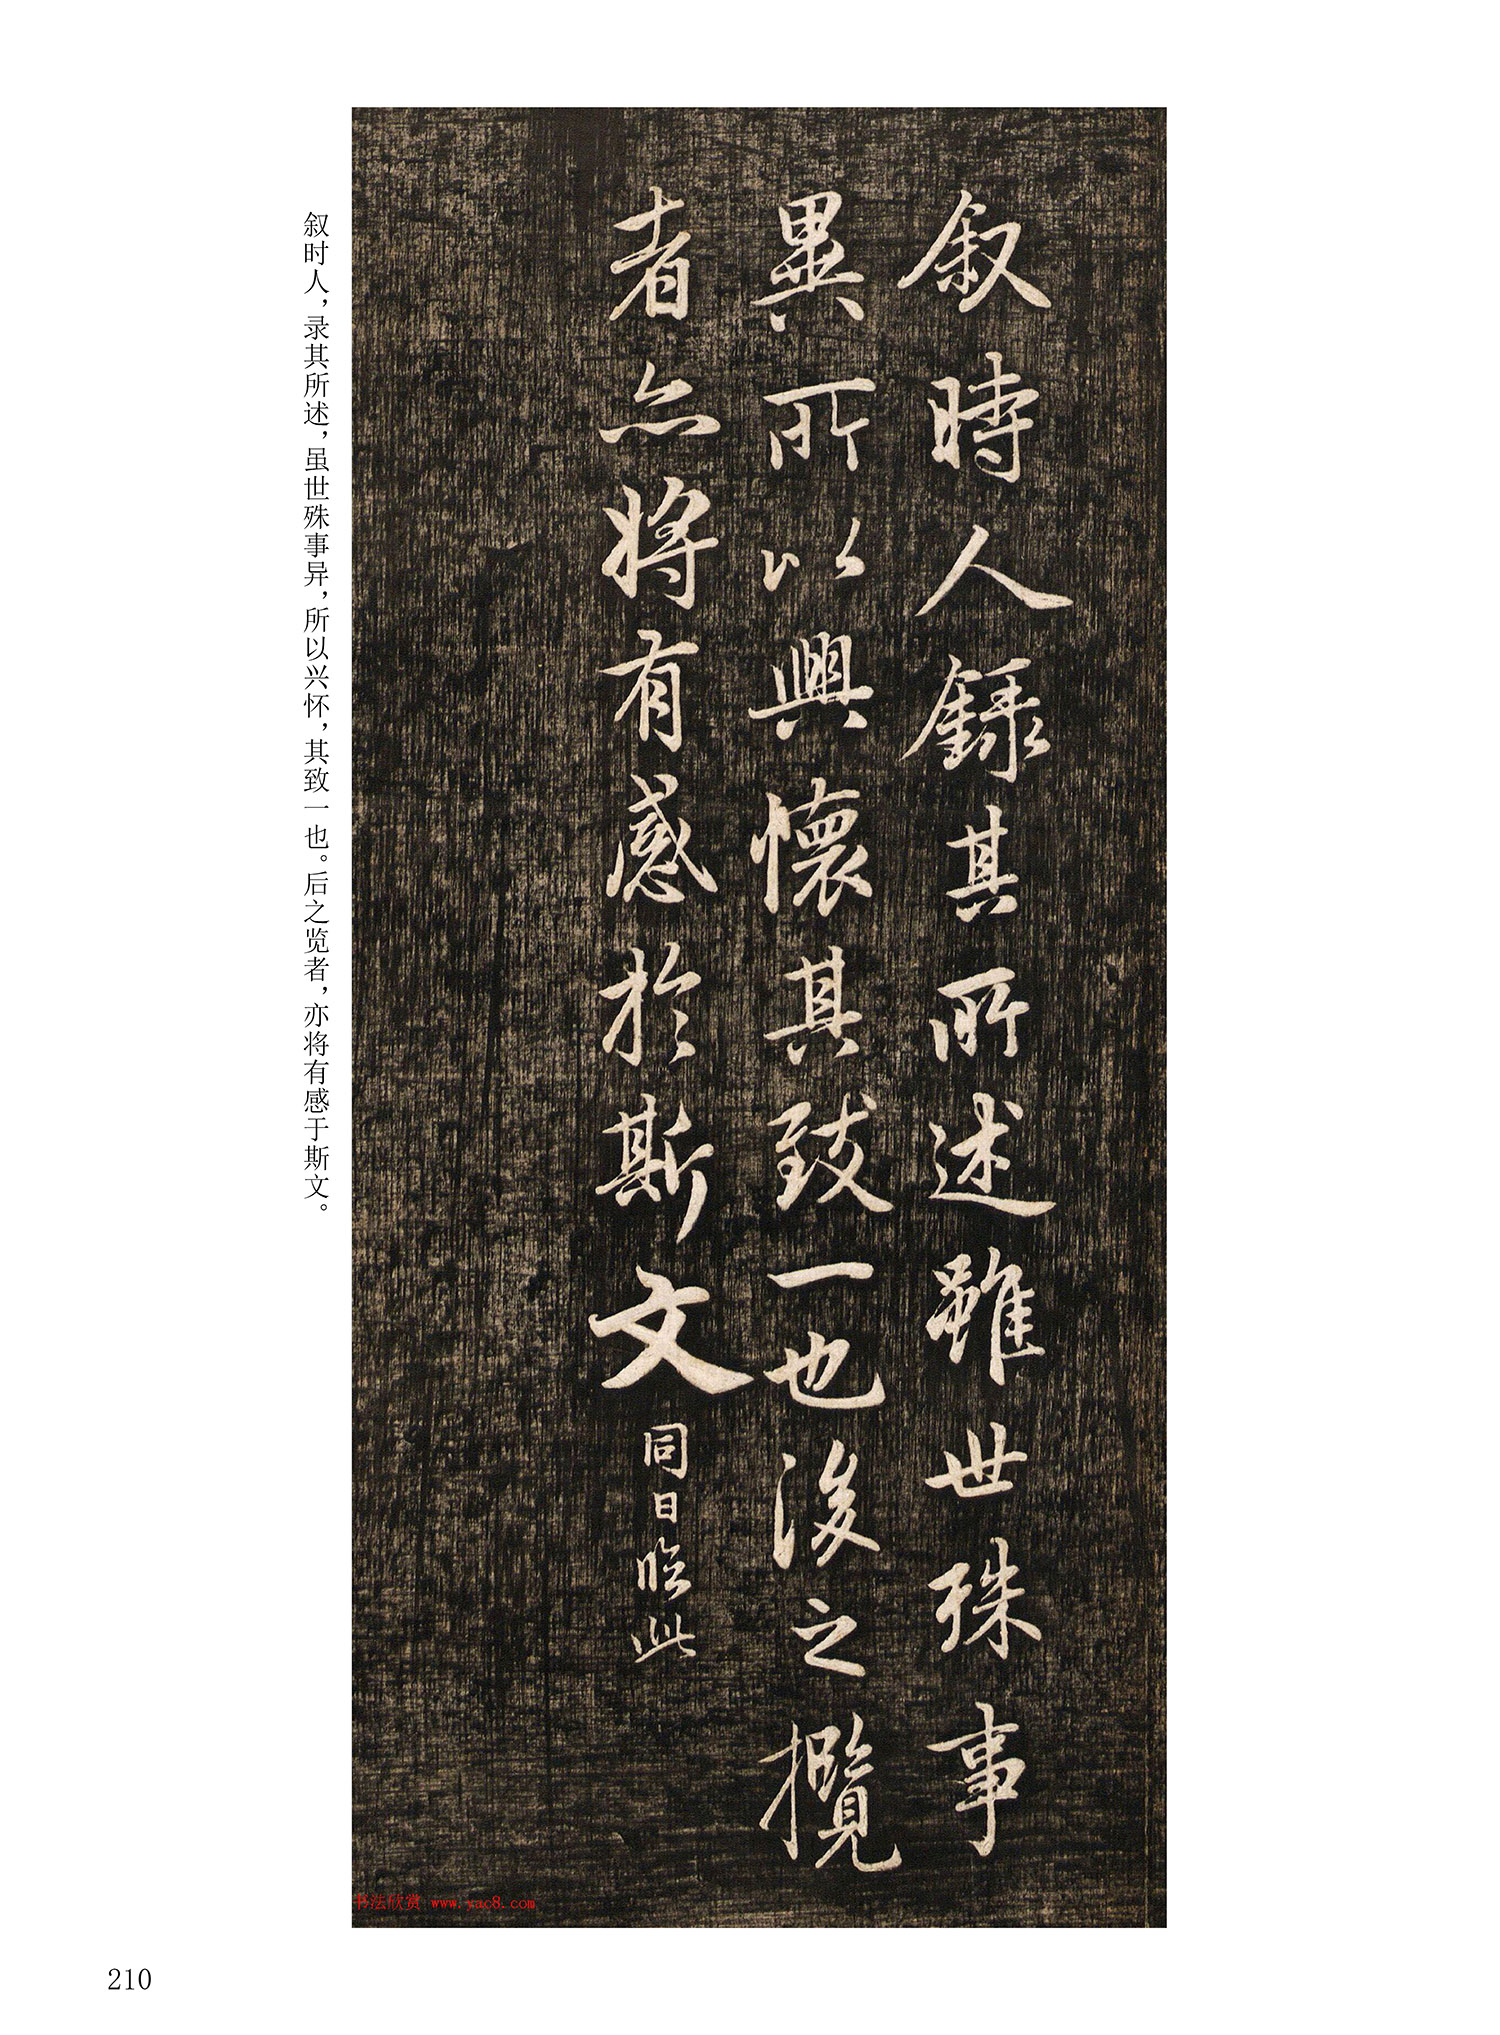 叙時人録其所述雖世殊事
異所以興懷其致一也後之攬
者亦將有感於斯文同日臨此
叙时人，录其所述，虽世殊事异，所以兴怀，其致一也。后之览者，亦将有感于斯文。
书法欣赏 www.yac8.com
210